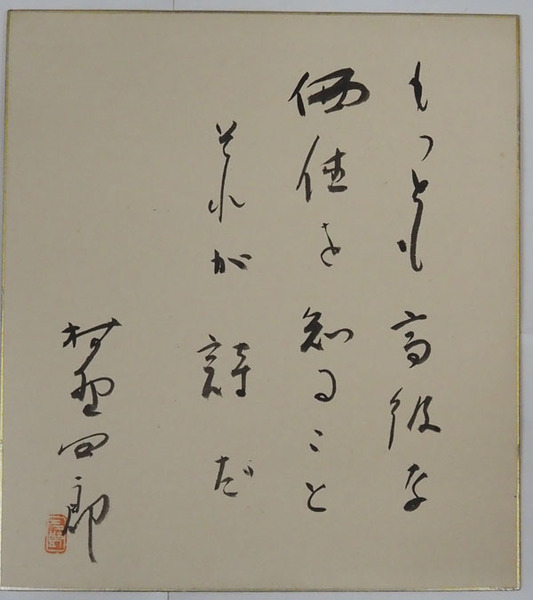 もつとも高級な
価値を知ること
それが詩だ
村野四郎